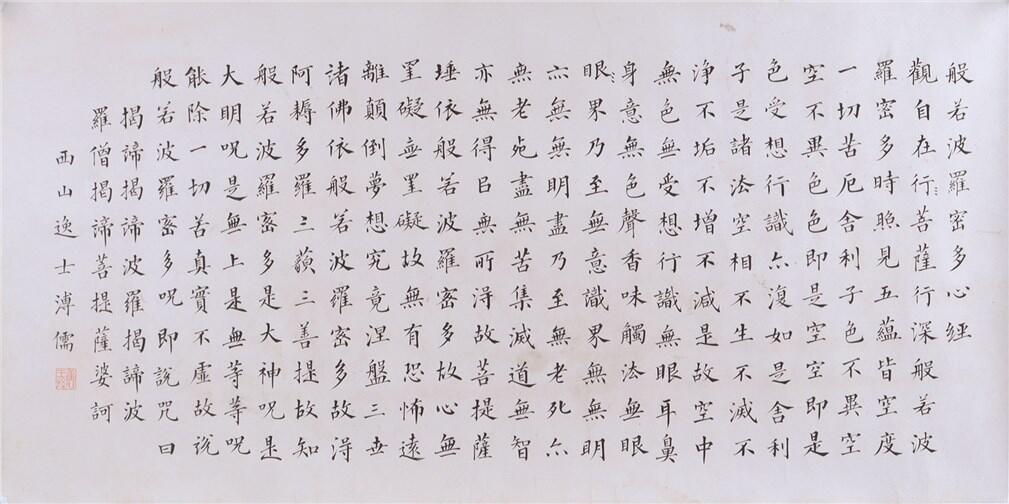 般若波羅密多心經
觀自在行菩薩行深般若波
羅密多時照見五蘊皆空度
一切苦厄舍利子色不異空
空不異色色即是空空即是
色受想行識亦復如是舍利
子是諸法空相不生不滅不
浄不垢不增不減是故空中
無色無受想行識無眼耳鼻
身意無色聲香味觸法無眼
眼界乃至無意識界無無明
亦無無明盡乃至無老死亦
無老死盡無苦集滅道無智
亦無得㠯無所得故菩提薩
埵依般若波羅密多故心無
罣礙無罣礙故無有恐怖遠
離顛倒夢想究竟涅盤三世
諸佛依般若波羅密多故得
阿耨多羅三藐三菩提故知
般若波羅密多是大神呪是
大明呪是無上是無等等呪
能除一切苦真實不虛故說
般若波羅密多呪即說咒曰
揭諦揭諦波羅揭諦波
羅僧揭諦菩提薩婆訶
西山逸士溥儒